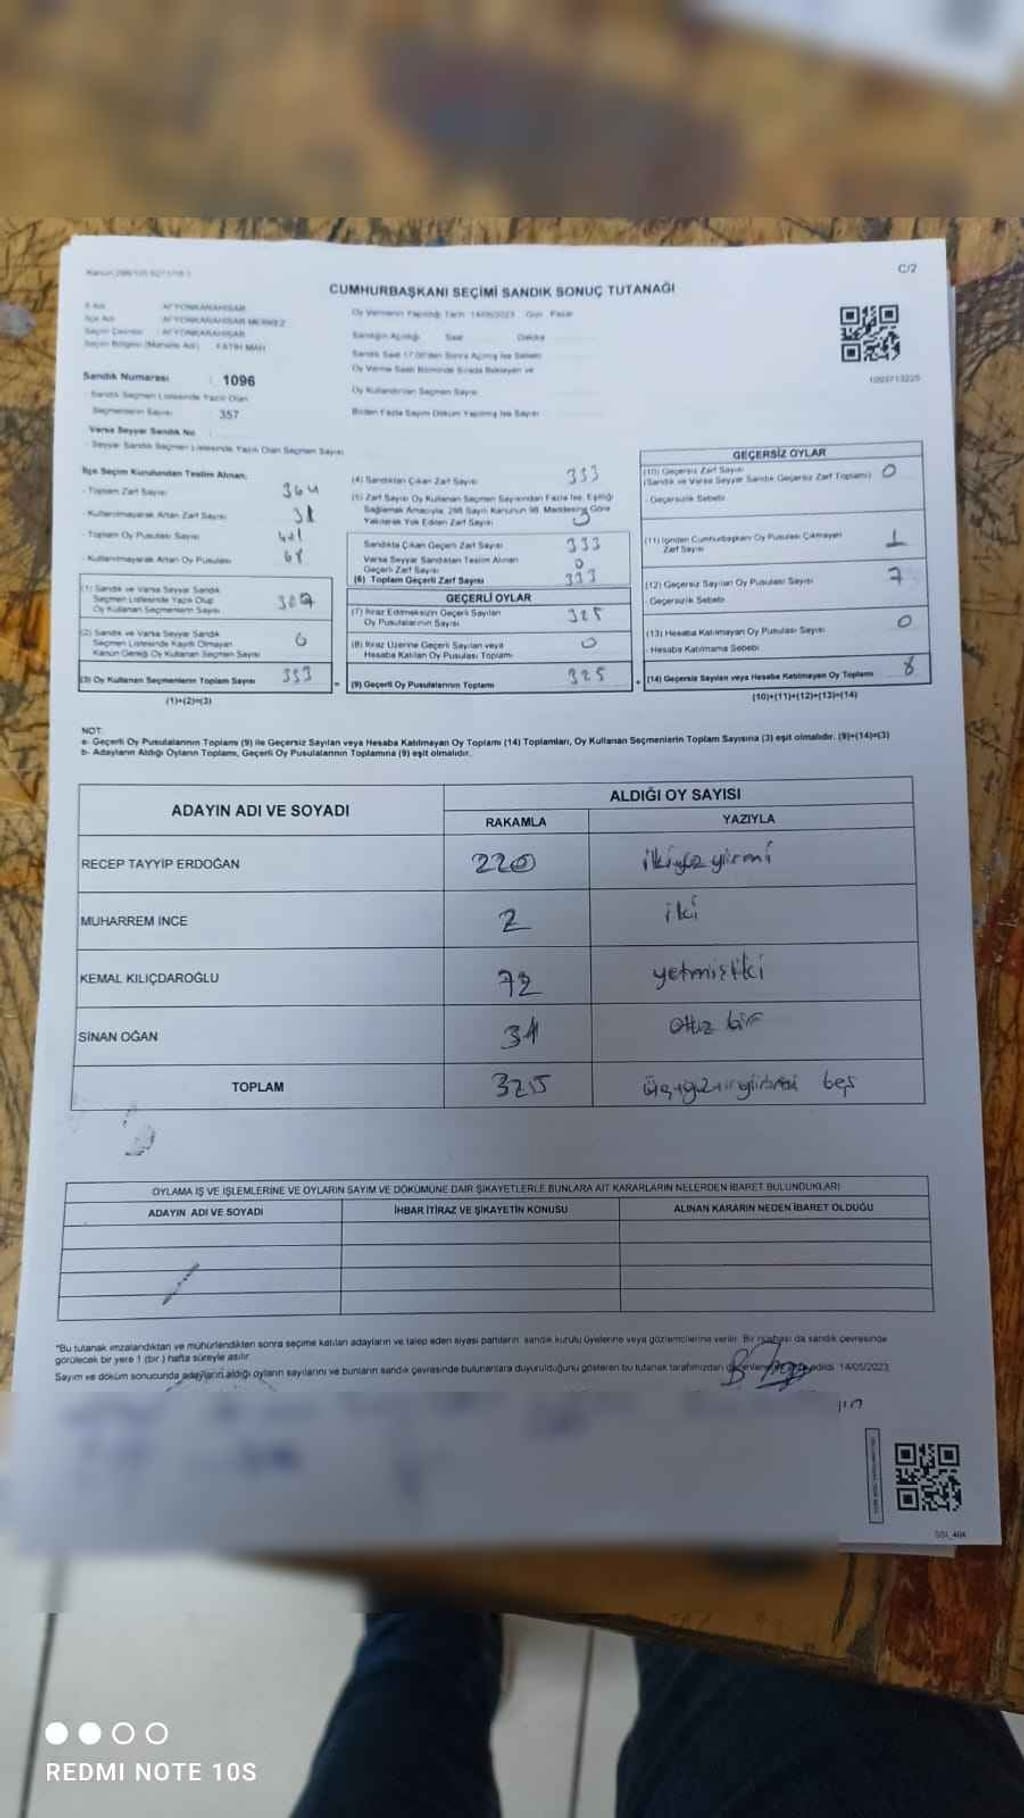 C/2
CUMHURBAŞKANI SEÇİMİ SANDIK SONUÇ TUTANAĞI
İl Adı : AFYONKARAHİSAR
İlçe Adı : AFYONKARAHİSAR MERKEZ
Seçim Çevresi : AFYONKARAHİSAR
Seçim Bölgesi (Muhtarlık Adı) : FATİH MAH
Sandık Numarası : 1096
Sandık Seçmen Listesinde Yazılı Olan
Seçmenlerin Sayısı : 357
Varsa Seyyar Sandık No
- Seyyar Sandık Seçmen Listesinde Yazılı Olan Seçmen Sayısı
Oy Vermenin Yapıldığı Tarih 14/05/2023 Gün Pazar
Sandığın Açıldığı Saat Dakika
Sandık Saat 17.00'den Sonra Açılmış İse Sebebi
Oy Verme Saati Bitiminde Sırada Bekleyen ve
Oy Kullandırılan Seçmen Sayısı
Birden Fazla Sayım Döküm Yapılmış İse Sayısı
İlçe Seçim Kurulundan Teslim Alınan,
- Toplam Zarf Sayısı 364
- Kullanılmayarak Artan Zarf Sayısı 31
- Toplam Oy Pusulası Sayısı
- Kullanılmayarak Artan Oy Pusulası 68
(1) Sandık ve Varsa Seyyar Sandık
Seçmen Listesinde Yazılı Olup
Oy Kullanan Seçmenlerin Sayısı
(2) Sandık ve Varsa Seyyar Sandık
Seçmen Listesinde Kayıtlı Olmayan
Kanun Gereği Oy Kullanan Seçmen Sayısı
(3) Oy Kullanan Seçmenlerin Toplam Sayısı 333
(1)+(2)=(3)
(4) Sandıktan Çıkan Zarf Sayısı 333
(5) Zarf Sayısı Oy Kullanan Seçmen Sayısından Fazla İse, Eşitliği
Sağlamak Amacıyla, 298 Sayılı Kanunun 98. Maddesine Göre
Yakılarak Yok Edilen Zarf Sayısı
Sandıkta Çıkan Geçerli Zarf Sayısı 333
Varsa Seyyar Sandıktan Teslim Alınan
Geçerli Zarf Sayısı 0
(6) Toplam Geçerli Zarf Sayısı 333
GEÇERLİ OYLAR
(7) İtiraz Edilmeksizin Geçerli Sayılan
Oy Pusulalarının Sayısı 325
(8) İtiraz Üzerine Geçerli Sayılan veya
Hesaba Katılan Oy Pusulası Toplamı 0
(9) Geçerli Oy Pusulalarının Toplamı 325
GEÇERSİZ OYLAR
(10) Geçersiz Zarf Sayısı
(Sandık ve Varsa Seyyar Sandık Geçersiz Zarf Toplamı) 0
- Geçersizlik Sebebi
(11) İçinden Cumhurbaşkanı Oy Pusulası Çıkmayan
Zarf Sayısı 1
(12) Geçersiz Sayılan Oy Pusulası Sayısı 7
- Geçersizlik Sebebi
(13) Hesaba Katılmayan Oy Pusulası Sayısı 0
- Hesaba Katılmama Sebebi
(14) Geçersiz Sayılan veya Hesaba Katılmayan Oy Toplamı 8
(10)+(11)+(12)+(13)=(14)
NOT:
a- Geçerli Oy Pusulalarının Toplamı (9) ile Geçersiz Sayılan veya Hesaba Katılmayan Oy Toplamı (14) Toplamları, Oy Kullanan Seçmenlerin Toplam Sayısına (3) eşit olmalıdır. (9)+(14)=(3)
b- Adayların Aldığı Oyların Toplamı, Geçerli Oy Pusulalarının Toplamına (9) eşit olmalıdır.
ADAYIN ADI VE SOYADI ALDIĞI OY SAYISI
RAKAMLA YAZIYLA
RECEP TAYYİP ERDOĞAN 220 ikiyüz yirmi
MUHARREM İNCE 2 iki
KEMAL KILIÇDAROĞLU 72 yetmişiki
SİNAN OĞAN 31 otuz bir
TOPLAM 325 üçyüzyirmi beş
OYLAMA İŞ VE İŞLEMLERİNE VE OYLARIN SAYIM VE DÖKÜMÜNE DAİR ŞİKAYETLERLE BUNLARA AİT KARARLARIN NELERDEN İBARET BULUNDUKLARI
ADAYIN ADI VE SOYADI İHBAR İTİRAZ VE ŞİKAYETİN KONUSU ALINAN KARARIN NEDEN İBARET OLDUĞU
"Bu tutanak imzalandıktan ve mühürlendikten sonra seçime katılan adayların ve talep eden siyasi partilerin sandık kurulu üyelerine veya gözlemcilerine verilir. Bir nüshası da sandık çevresinde
görülecek bir yere 1 (bir) hafta süreyle asılır.
Sayım ve döküm sonucunda adayların aldığı oyların sayılarını ve bunların sandık çevresinde bulunanlara duyurulduğunu gösteren bu tutanak tarafımızdan edildi. 14/05/2023
REDMI NOTE 10S